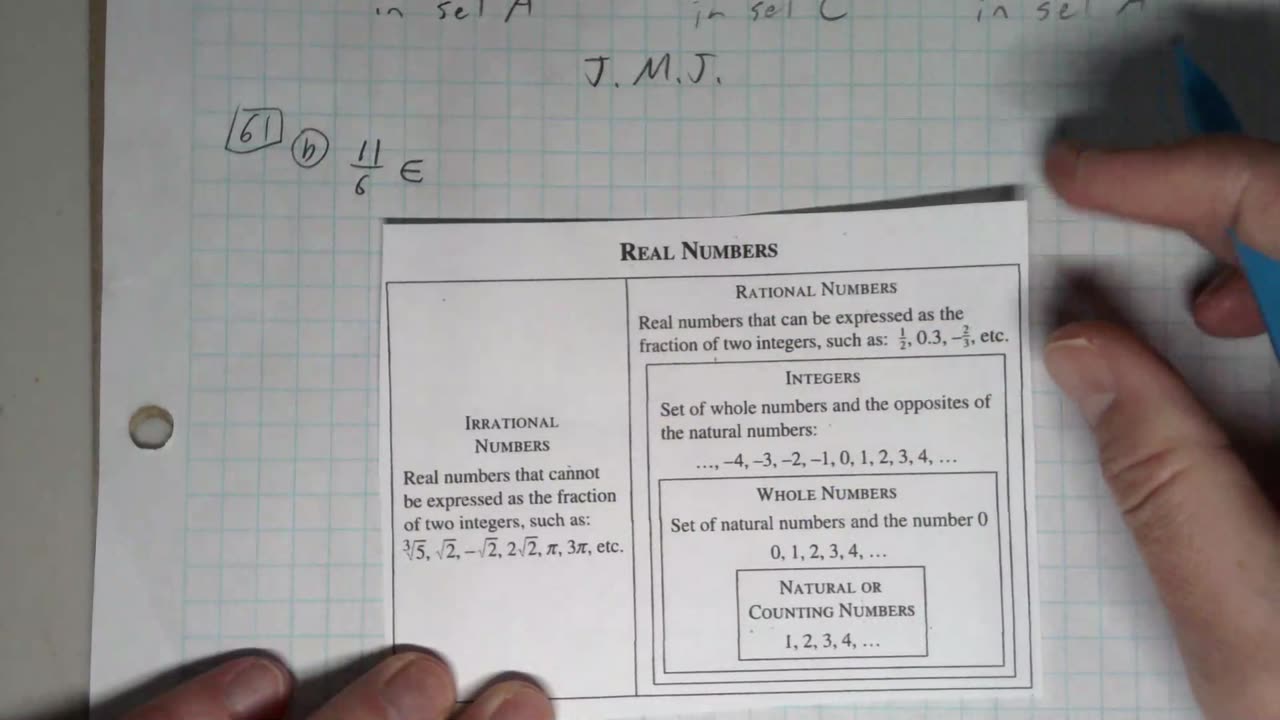 in set A in set C in set A
J. M. J.
61 b 11/6 ∈
REAL NUMBERS
IRRATIONAL
NUMBERS
Real numbers that cannot
be expressed as the fraction
of two integers, such as:
∛5, √2, −√2, 2√2, π, 3π, etc.
RATIONAL NUMBERS
Real numbers that can be expressed as the
fraction of two integers, such as: 1/2, 0.3, −2/3, etc.
INTEGERS
Set of whole numbers and the opposites of
the natural numbers:
…, −4, −3, −2, −1, 0, 1, 2, 3, 4, …
WHOLE NUMBERS
Set of natural numbers and the number 0
0, 1, 2, 3, 4, …
NATURAL OR
COUNTING NUMBERS
1, 2, 3, 4, …